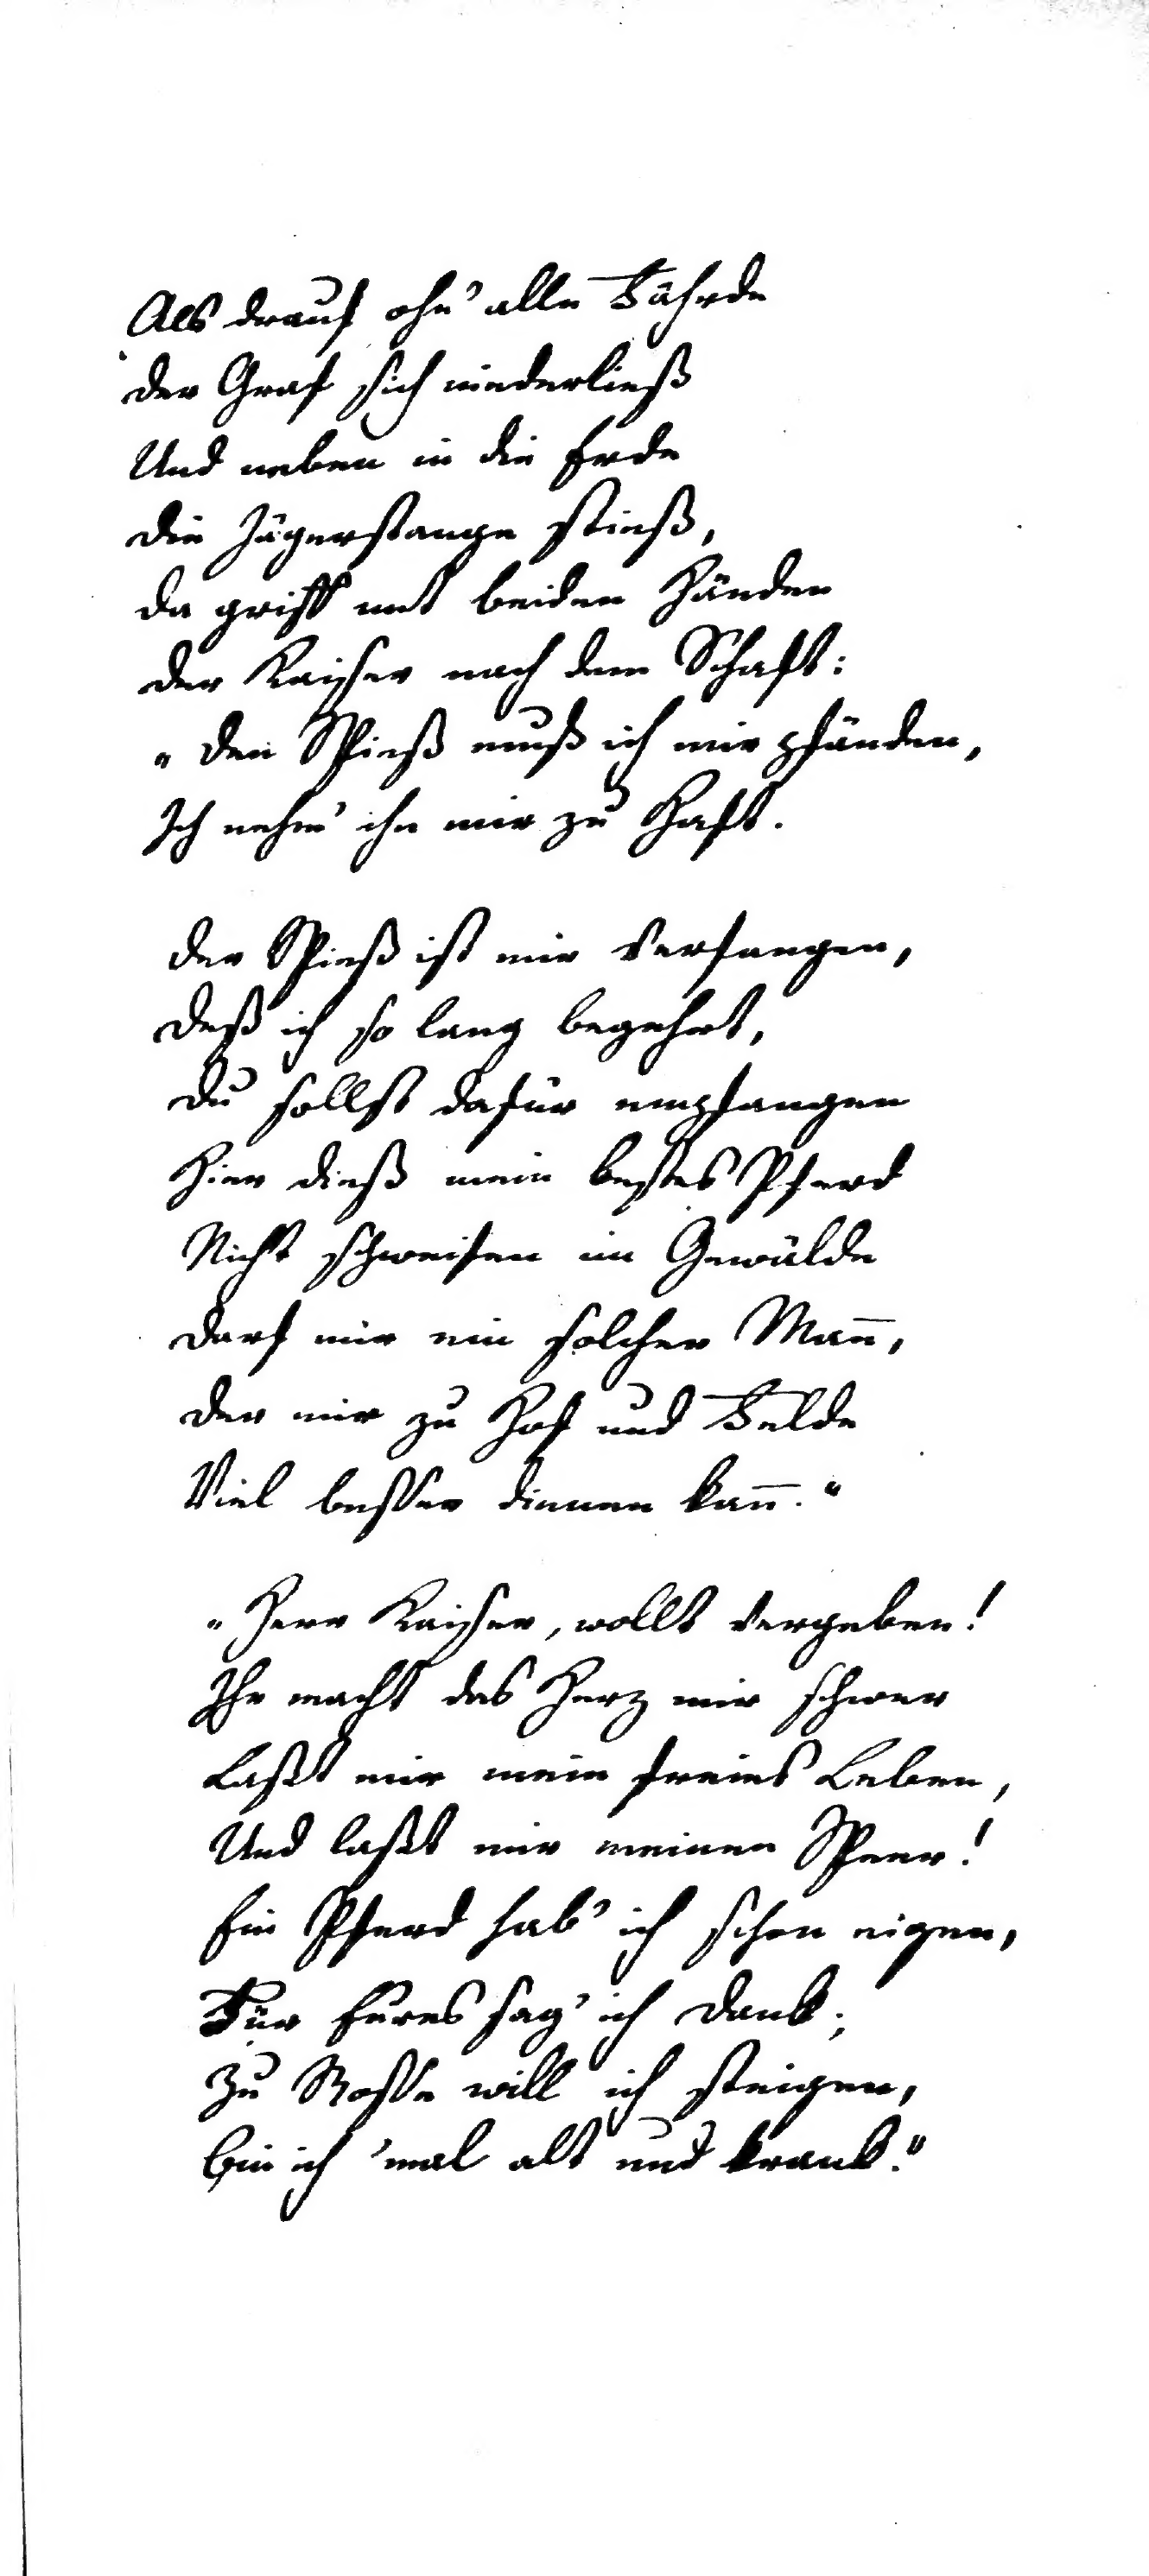 Als drauf ohn' alle Fährde
der Graf sich niederließ
Und neben in die Erde
die Jägerstange stieß,
da griff mit beiden Händen
der Kaiser nach dem Schaft:
„den Spieß muß ich mir pfänden,
Ich nehm' ihn mir zu Haft.
der Spieß ist mir verfangen,
deß ich so lang begehrt,
du sollst dafür empfangen
Hier dieß mein bestes Pferd
Nicht schweifen im Gewälde
darf mir ein solcher Man̄,
der mir zu Hof und Felde
Viel besser dienen kan̄.“
„Herr Kaiser, wollt vergeben!
Ihr macht das Herz mir schwer
Laßt mir mein freies Leben,
Und laßt mir meinen Speer!
Ein Pferd hab' ich schon eigen,
Für Eures sag' ich Dank;
Zu Rosse will ich steigen,
bin ich 'mal alt und krank.“